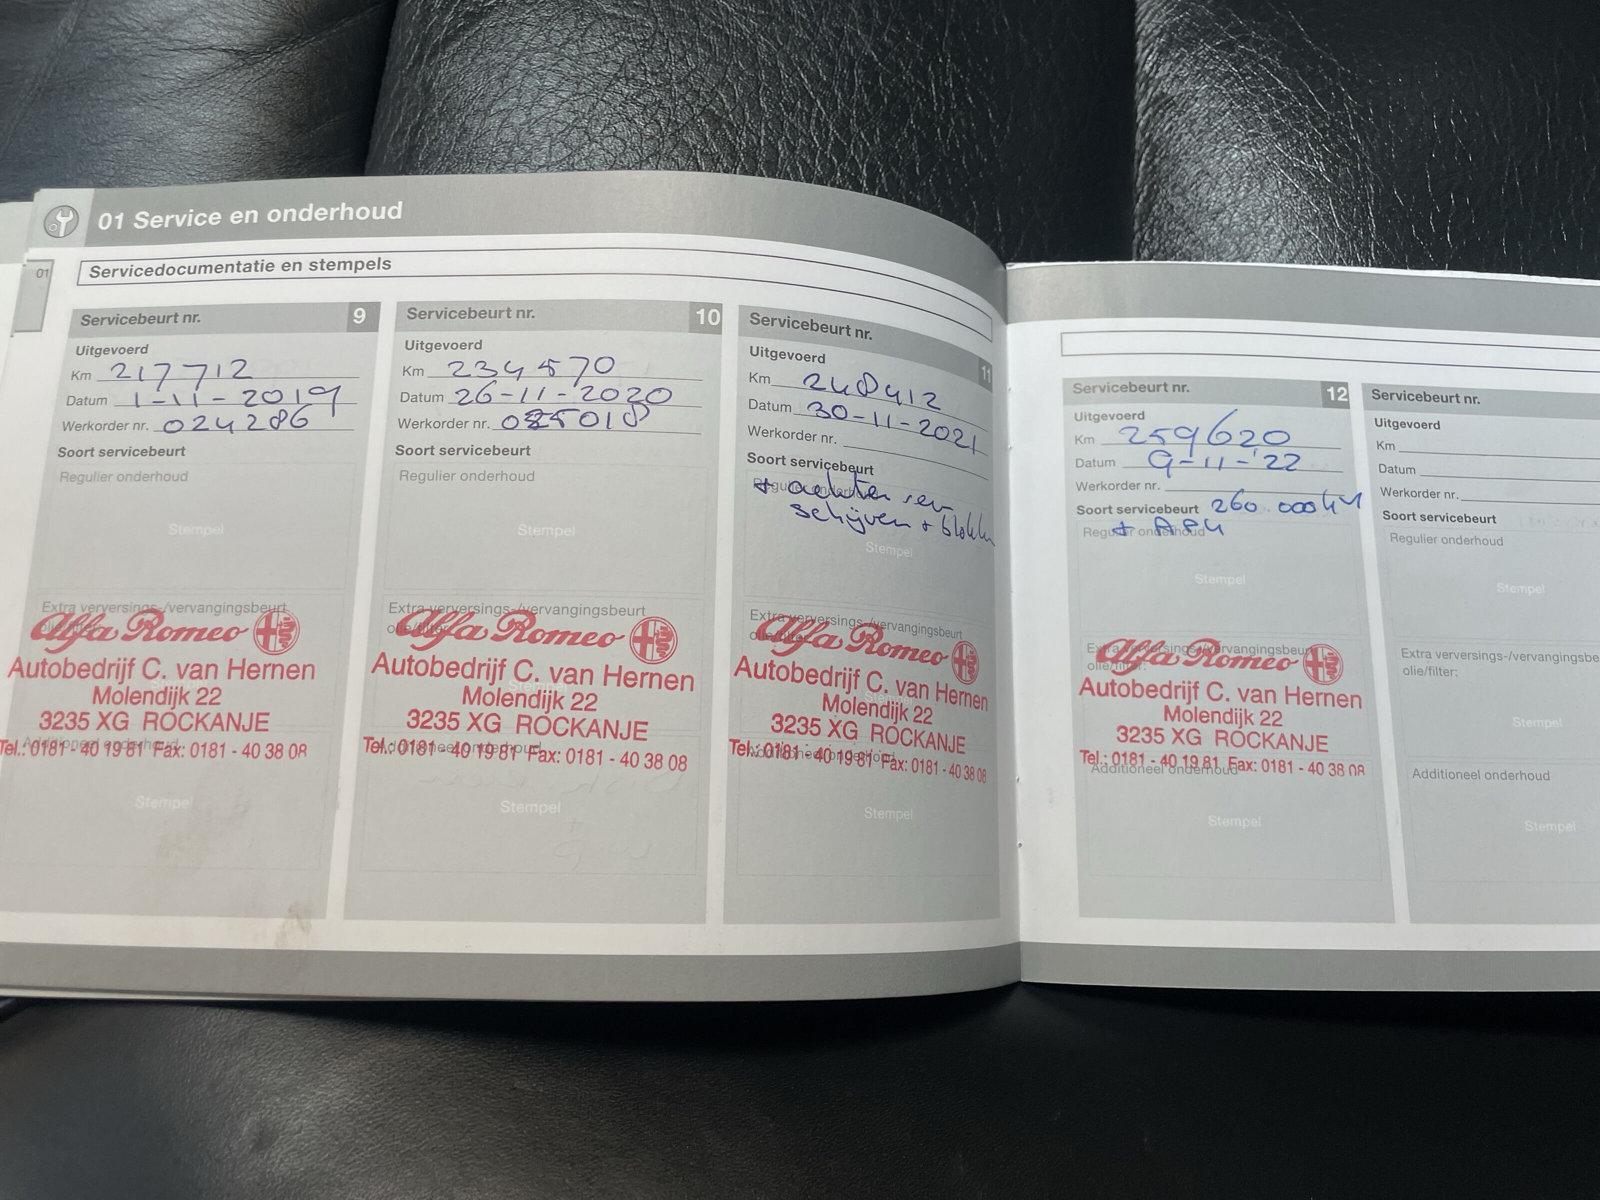 01 Service en onderhoud
01
Servicedocumentatie en stempels
Servicebeurt nr. 9
Uitgevoerd
Km 217712
Datum 1-11-2019
Werkorder nr. 024286
Soort servicebeurt
Regulier onderhoud
Stempel
Extra verversings-/vervangingsbeurt
olie/filter:
Alfa Romeo
Autobedrijf C. van Hernen
Molendijk 22
3235 XG ROCKANJE
Tel.: 0181 - 40 19 81 Fax: 0181 - 40 38 08
Additioneel onderhoud
Stempel
Servicebeurt nr. 10
Uitgevoerd
Km 234570
Datum 26-11-2020
Werkorder nr. 025018
Soort servicebeurt
Regulier onderhoud
Stempel
Extra verversings-/vervangingsbeurt
olie/filter:
Alfa Romeo
Autobedrijf C. van Hernen
Stempel
Molendijk 22
3235 XG ROCKANJE
Tel.: 0181 - 40 19 81 Fax: 0181 - 40 38 08
Additioneel onderhoud
Stempel
Servicebeurt nr. 11
Uitgevoerd
Km 248412
Datum 30-11-2021
Werkorder nr.
Soort servicebeurt
Regulier onderhoud
+ achter rem
schijven + blokken
Stempel
Extra verversings-/vervangingsbeurt
olie/filter:
Alfa Romeo
Autobedrijf C. van Hernen
Stempel
Molendijk 22
3235 XG ROCKANJE
Tel.: 0181 - 40 19 81 Fax: 0181 - 40 38 08
Additioneel onderhoud
Stempel
Servicebeurt nr. 12
Uitgevoerd
Km 259620
Datum 9-11-'22
Werkorder nr.
Soort servicebeurt 260.000
Regulier onderhoud
+ APK
Stempel
Extra verversings-/vervangingsbeurt
olie/filter:
Alfa Romeo
Autobedrijf C. van Hernen
Molendijk 22
3235 XG ROCKANJE
Tel.: 0181 - 40 19 81 Fax: 0181 - 40 38 08
Additioneel onderhoud
Stempel
Servicebeurt nr.
Uitgevoerd
Km
Datum
Werkorder nr.
Soort servicebeurt
Regulier onderhoud
Stempel
Extra verversings-/vervangingsbe
olie/filter:
Stempel
Additioneel onderhoud
Stempel